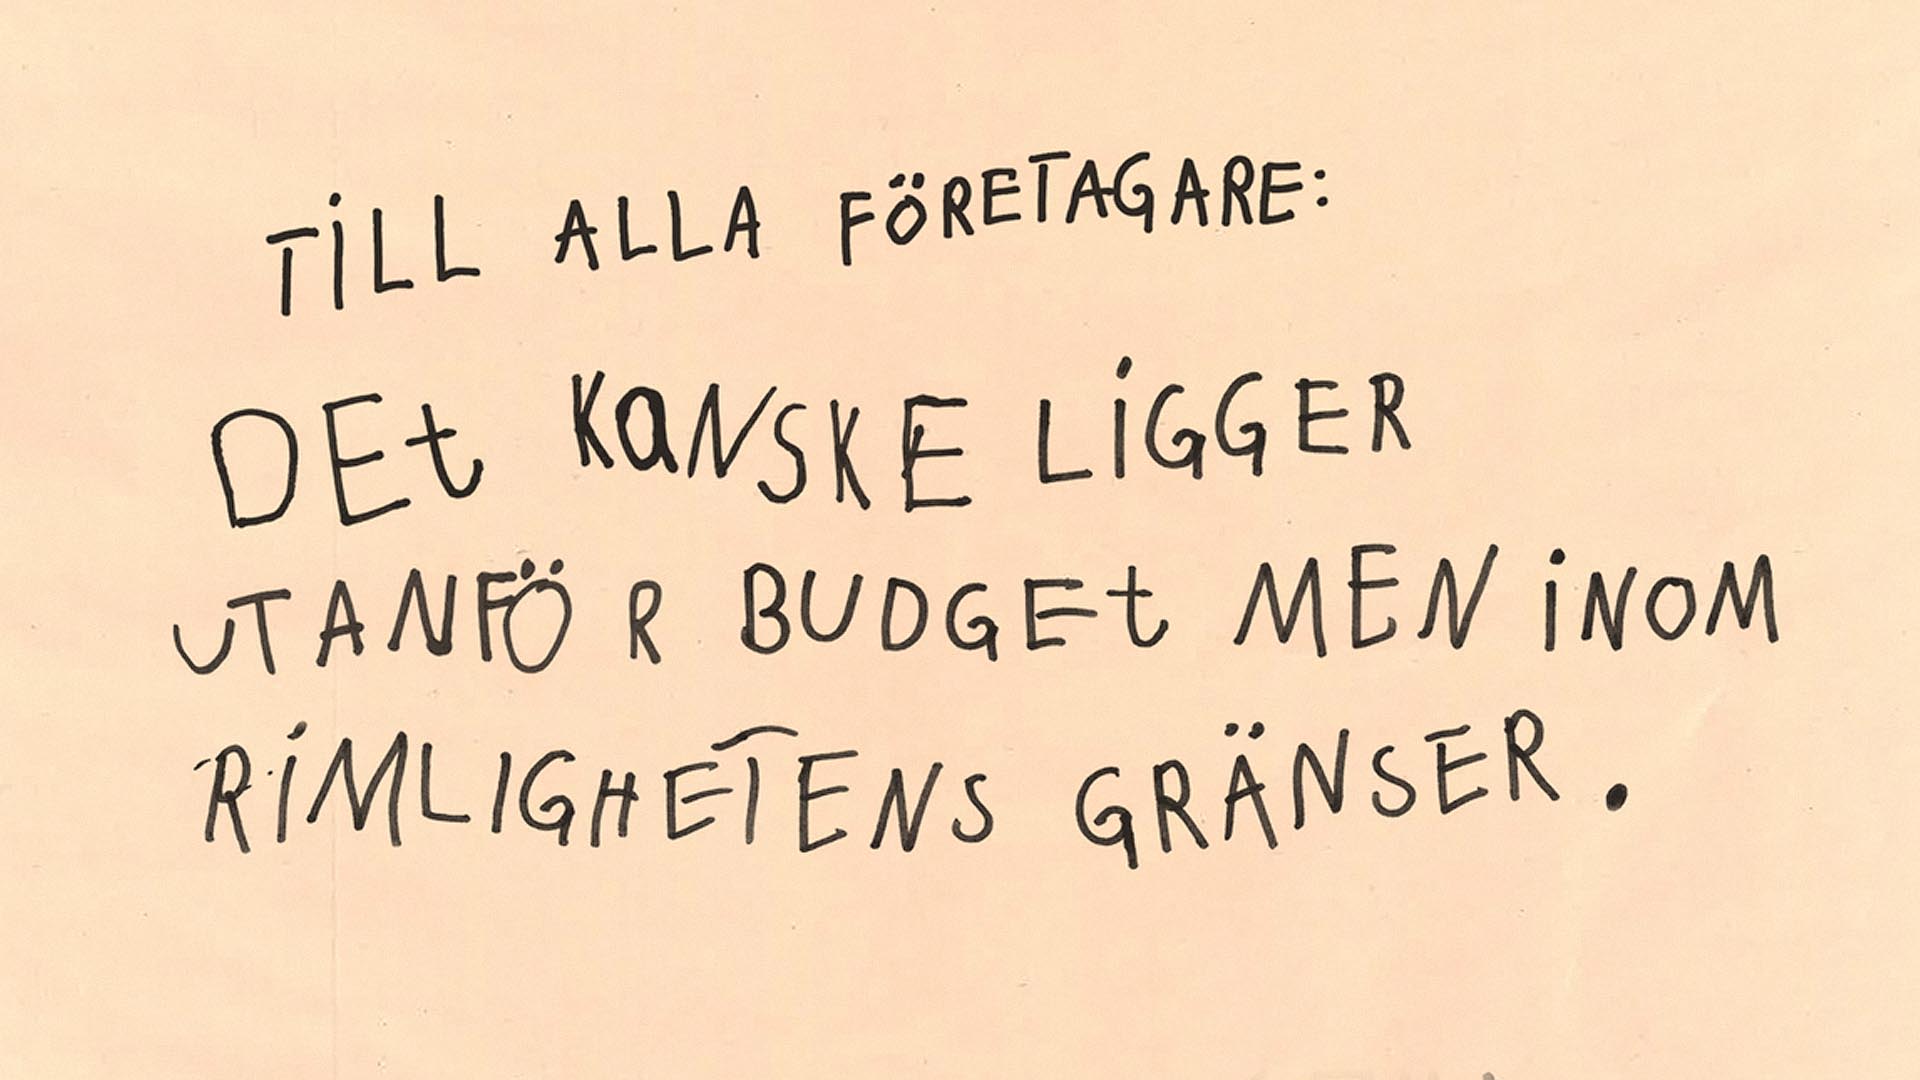 TILL ALLA FÖRETAGARE:
DEt KaNSKE LIGGER
UTANFÖR BUDGEt MEN INOM
RIMLIGHETENS GRÄNSER.